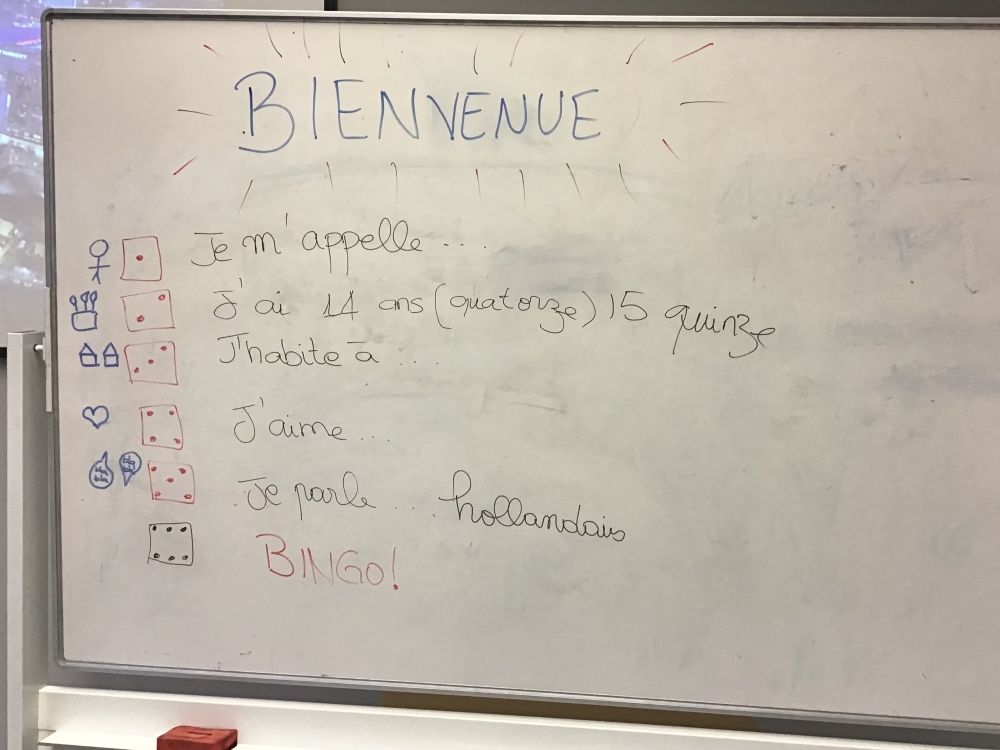 BIENVENUE
Je m'appelle ....
J'ai 14 ans (quatorze) 15 quinze
J'habite à ...
J'aime ...
Je parle .... hollandais
BINGO!